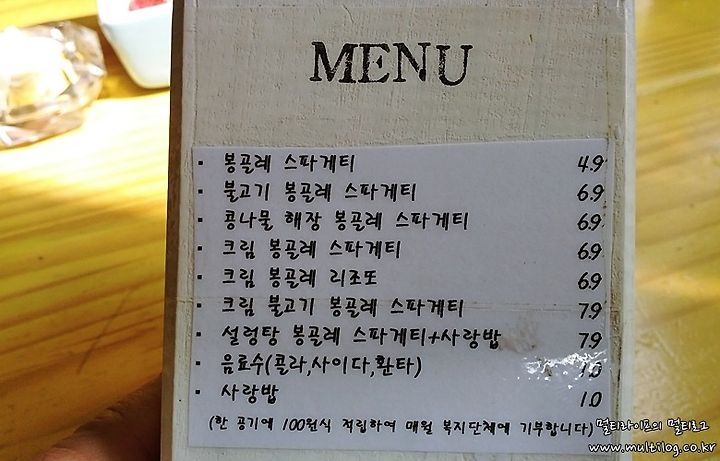 MENU
· 봉골레 스파게티 4.9
· 불고기 봉골레 스파게티 6.9
· 콩나물 해장 봉골레 스파게티 6.9
· 크림 봉골레 스파게티 6.9
· 크림 봉골레 리조또 6.9
· 크림 불고기 봉골레 스파게티 7.9
· 설렁탕 봉골레 스파게티+사랑밥 7.9
· 음료수(콜라,사이다,환타) 1.0
· 사랑밥 1.0
(한 공기에 100원식 적립하여 매월 복지단체에 기부합니다)
멀티라이프의 멀티로그
www.multilog.co.kr